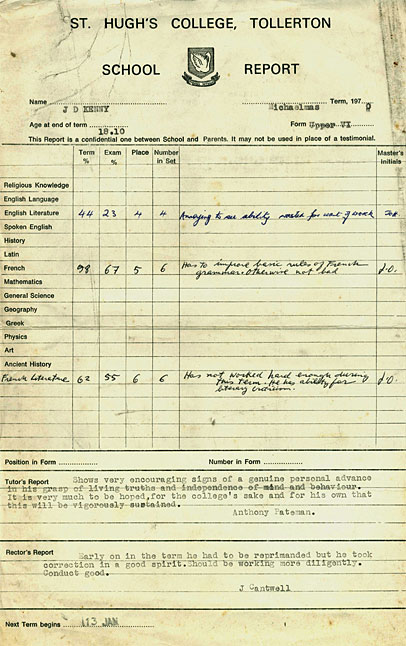 ST. HUGH'S COLLEGE, TOLLERTON
SCHOOL REPORT
Name J D KENNY Michaelmas Term, 1970
Age at end of term 18.10 Form Upper VI
This Report is a confidential one between School and Parents. It may not be used in place of a testimonial.
Term % Exam % Place Number in Set Master's Initials
Religious Knowledge
English Language
English Literature 44 23 4 4 Annoying to see ability wasted for want of work
Spoken English
History
Latin
French 98 67 5 6 Has to improve basic rules of French
grammar. Otherwise not bad J.O.
Mathematics
General Science
Geography
Greek
Physics
Art
Ancient History
French Literature 62 55 6 6 Has not worked hard enough during
this term. He has ability for
literary criticism. J.O.
Position in Form Number in Form
Tutor's Report Shows very encouraging signs of a genuine personal advance
in his grasp of living truths and independence of mind and behaviour.
It is very much to be hoped,for the college's sake and for his own that
this will be vigorously sustained.
Anthony Pateman.
Rector's Report Early on in the term he had to be reprimanded but he took
correction in a good spirit.Should be working more diligently.
Conduct good.
J Cantwell
Next Term begins 13 JAN